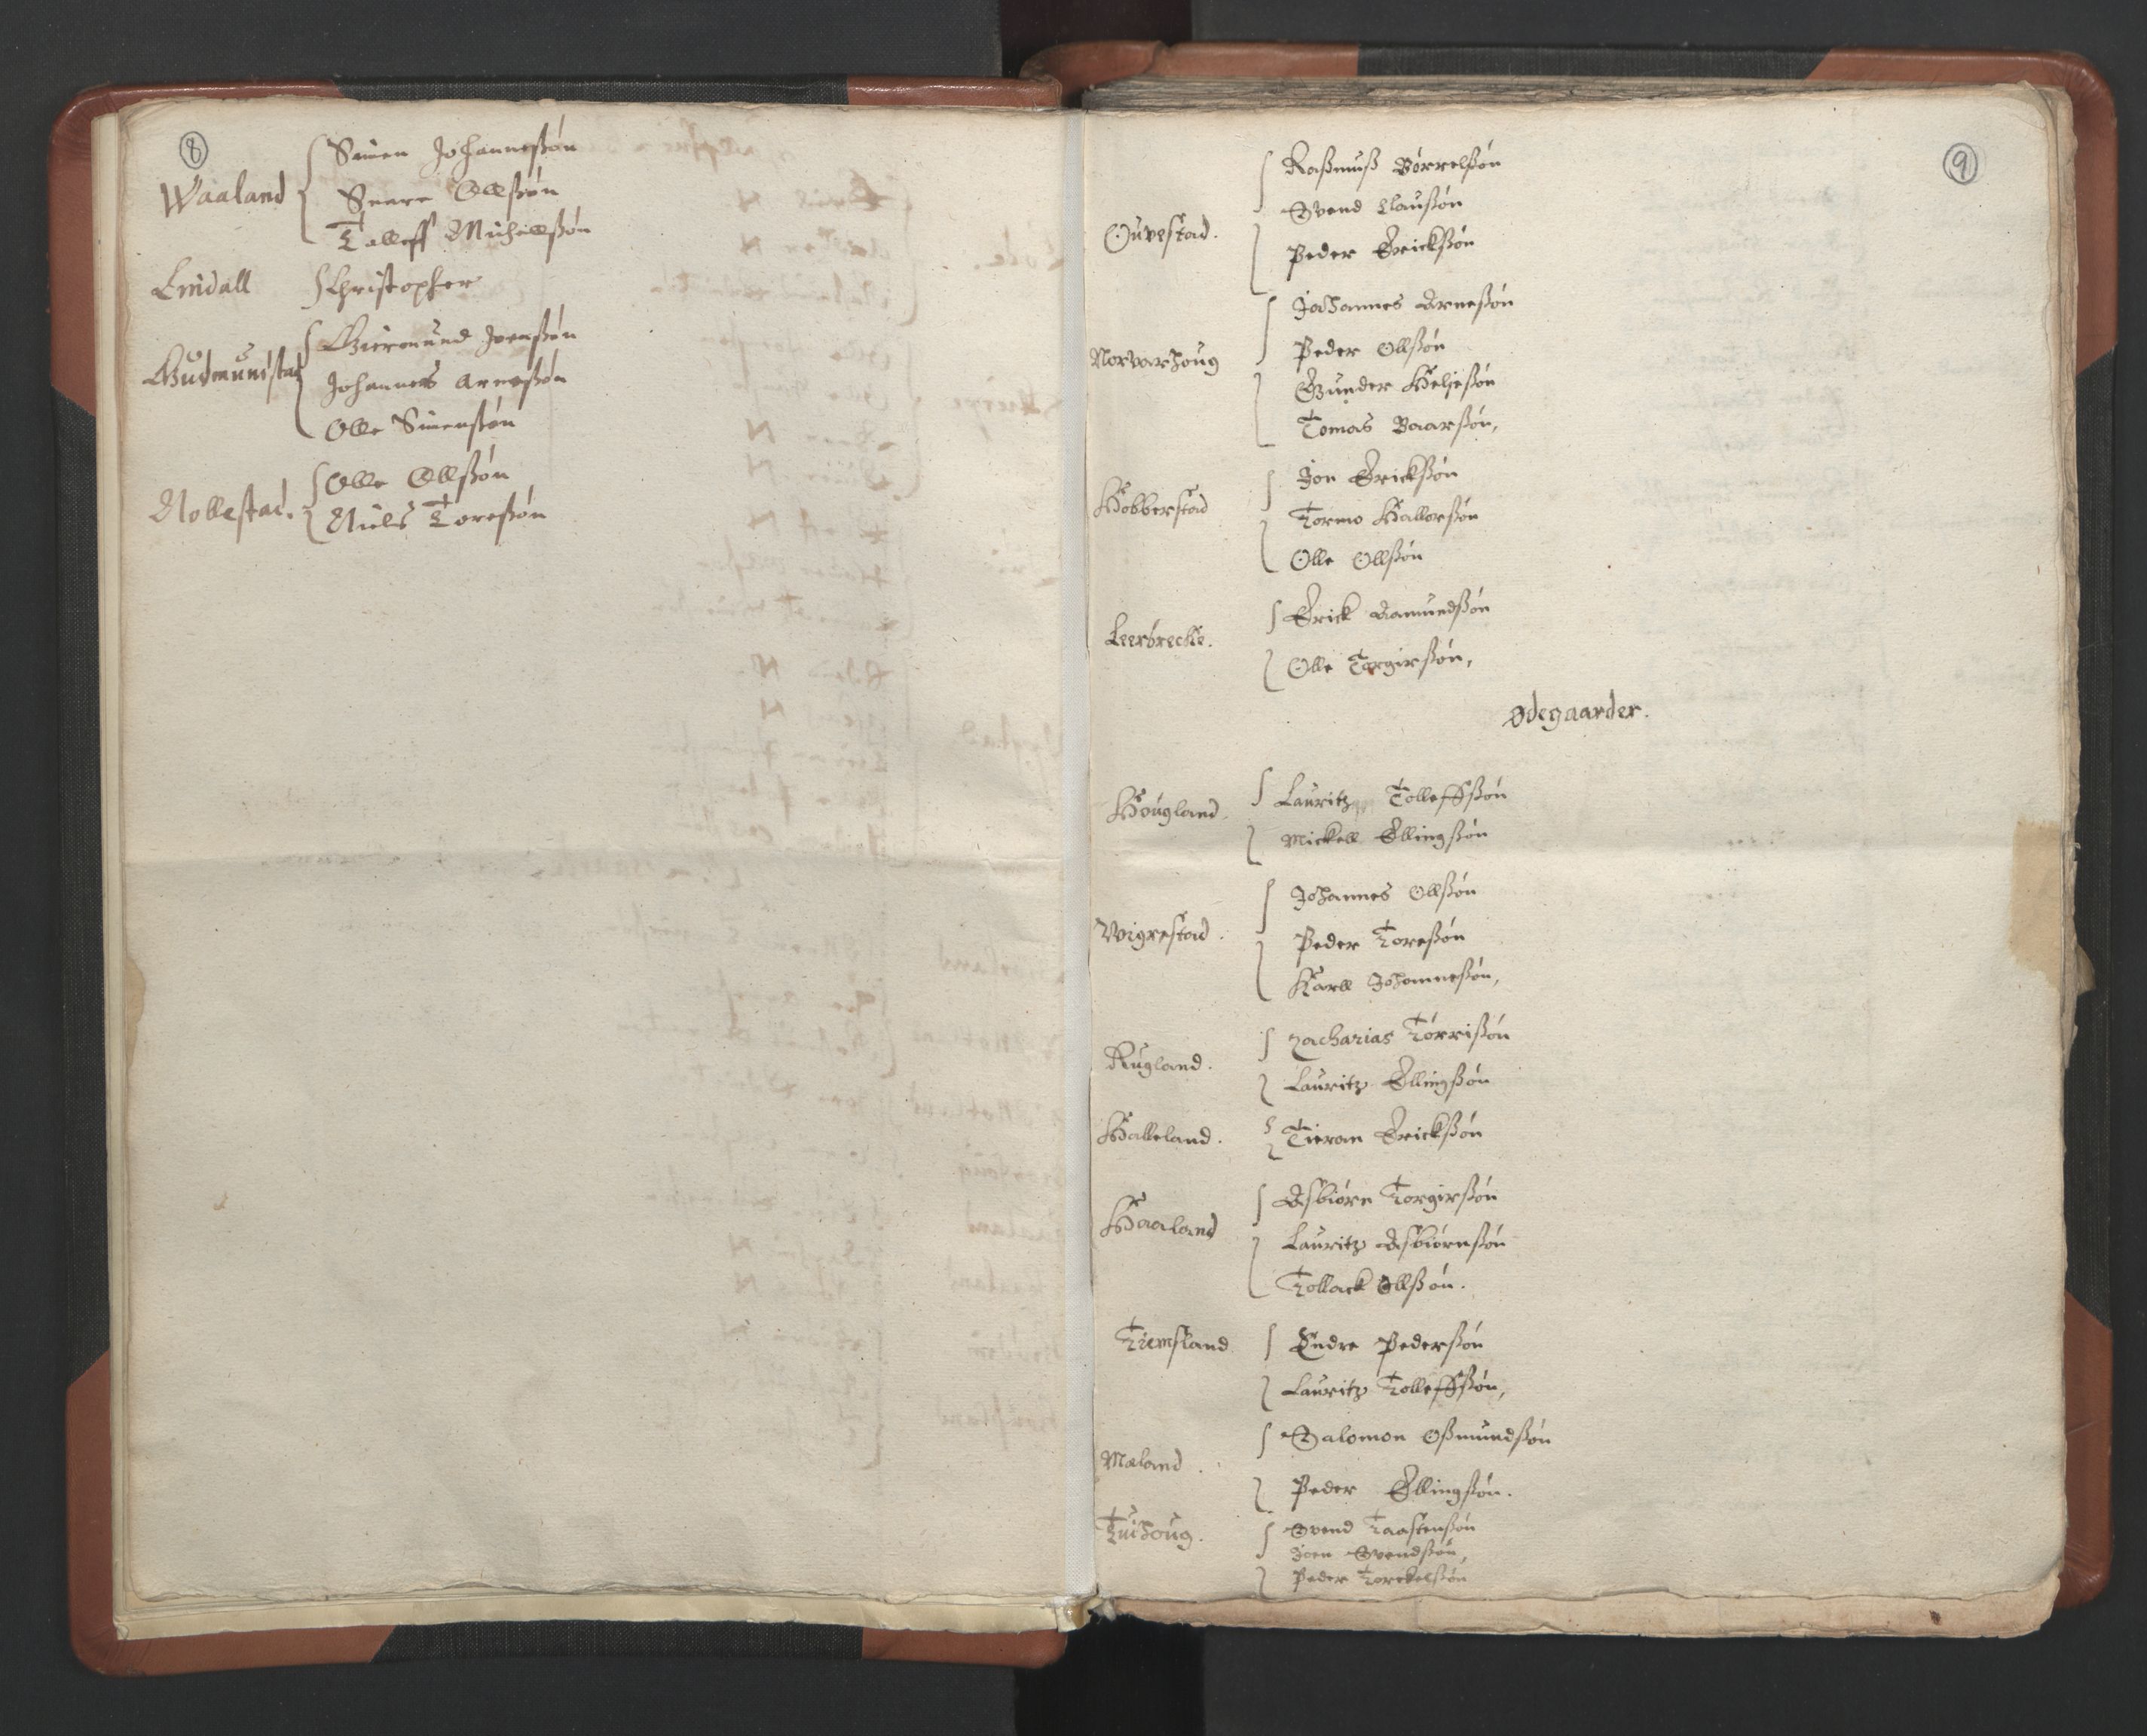 8
Waaland
Simen Johannesßøn
Snare Ollßøn
Talleff Michelßøn
Lindall Christopher
Gudmunistad
Giermund Joenßøn
Johannes Arneßøn
Olle Simenßøn
Nollestad.
Olle Ollßøn
Niels Toreßøn
9
Ouvestad.
Raßmuß Børrelßøn
Svend Claußøn
Peder Erickßøn
Norvarhoug
Johannes Arneßøn
Peder Ollßøn
Gunder Heljeßøn
Tomas Baarßøn,
Hobberstad
Jon Erickßøn
Tormo Hallorßøn
Olle Ollßøn
Leerbrecke.
Erick Aamundßøn
Olle Torgirßøn,
Ødegaarder.
Hougland.
Lauritz Tolleffßøn
Mickell Ellingßøn
Wigrestad.
Johannes Ollßøn
Peder Toreßøn
Karll Johanneßøn,
Rugland.
Zacharias Tørrißøn
Lauritz Ellingßøn
Halleland. Tieran Erickßøn
Haaland
Asbiørn Torgirßøn
Lauritz Asbiørnßøn
Tollack Ollßøn.
Tiemsland
Endre Pederßøn
Lauritz Tolleffßøn,
Mæland.
Salomon Oßmundßøn
Peder Ellingßøn.
Tuihoug.
Svend Taastenßøn
Joen Svendßøn,
Peder Torckelßøn